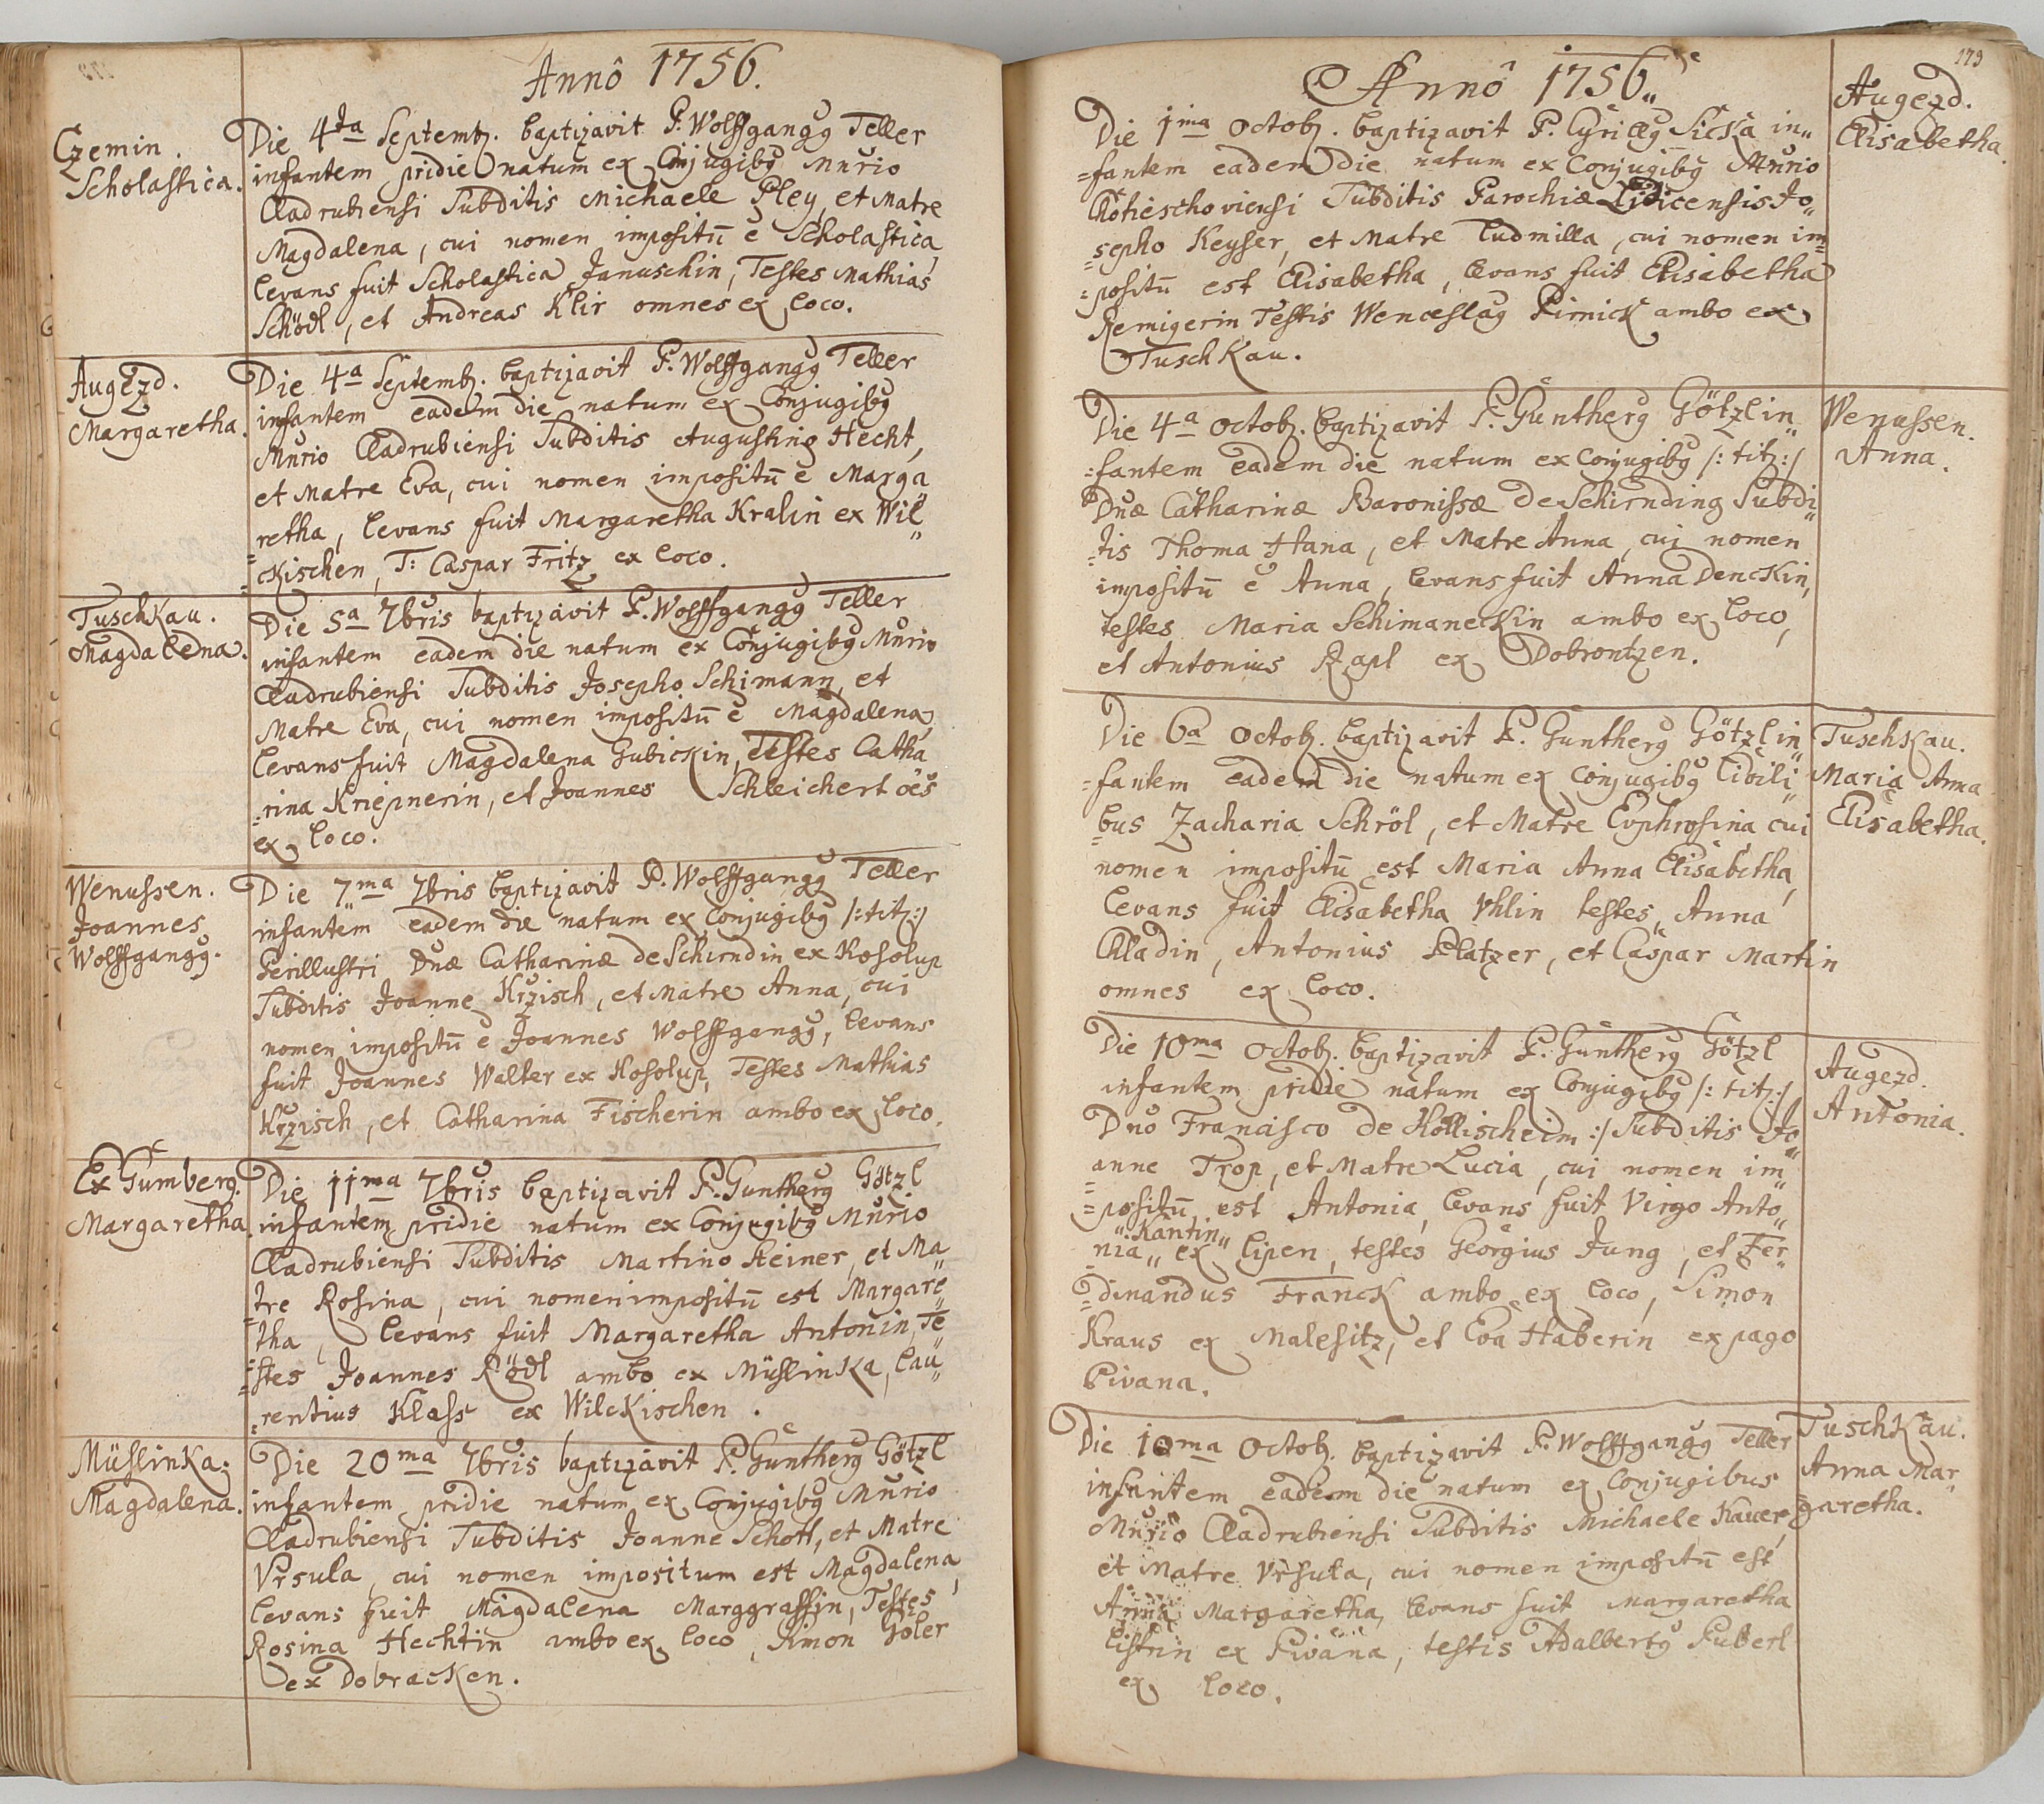 Annô 1756.
Czemin.
Scholastica.
Die 4ta Septemb. baptizavit P. Wolffgangg Teller
infantem pridie natum ex Conjugibg Mnrio
Cladrubiensi Subditis Michaele Pley, et Matre
Magdalena, cui nomen impositū ē Scholastica,
levans fuit Scholastica Januschkin, Testes Mathias
Schödl, et Andreas Klir omnes ex loco.
Augezd.
Margaretha.
Die 4a Septemb. baptizavit P. Wolffgangg Teller
infantem eadem die natum ex Conjugibg
Mnrio Cladrubiensi Subditis Augusting Hecht,
et Matre Eva, cui nomen impositū ē Marga„
=retha, levans fuit Margaretha Kralin ex Wil„
=ckischen, T: Caspar Fritz ex loco.
Tuschkau.
Magdalena.
Die 5a 7bris baptizavit P. Wolffgangg Teller
infantem eadem die natum ex Conjugibg Mnrio
Cladrubiensi Subditis Josepho Schimann, et
Matre Eva, cui nomen impositū ē Magdalena,
levans fuit Magdalena Gubickin, Testes Catha„
=rina Kriepnerin, et Joannes Schleichert oēs
ex loco.
Wenussen.
Joannes
Wolffgangg.
Die 7ma 7bris baptizavit P. Wolffgangg Teller
infantem eadem die natum ex Conjugibg /:tit:/
Perillustri Dnæ Catharinæ de Schirndin ex Kosolup
Subditis Joanne Krzisch, et Matre Anna, cui
nomen impositū ē Joannes Wolffgangg, levans
fuit Joannes Walter ex Kosolup, Testes Mathias
Krzisch, et Catharina Fischerin ambo ex loco.
Ex Gumberg.
Margaretha.
Die 11ma 7bris baptizavit P. Guntherg Götzl
infantem pridie natum ex Conjugibg Mnrio
Cladrubiensi Subditis Martino Steiner, et Ma„
=tre Rosina, cui nomen impositū est Margare„
=tha, levans fuit Margaretha Antonin, Te„
=stes Joannes Rödl ambo ex Müslinka, Lau„
=rentius Klass ex Wilckischen.
Müslinka:
Magdalena.
Die 20ma 7bris baptizavit P. Guntherg Götzl
infantem pridie natum ex Conjugibg Mnrio
Cladrubiensi Subditis Joanne Schott, et Matre
Vrsula, cui nomen impositum est Magdalena,
levans fuit Magdalena Marggraffin, Testes
Rosina Hechtin ambo ex loco, Simon Göler
ex Dobracken.
173
Annô 1756„
Die 1ma Octob. baptizavit P. Cyriacg Sicka in„
=fantem eadem die natum ex Conjugibg Mnrio
Chotieschoviensi Subditis Parochiæ Lidicensis Jo„
=sepho Keyser, et Matre Ludmilla, cui nomen im=
=positū est Elisabetha, levans fuit Elisabetha
Remigerin Testis Wenceslag Pirnick ambo ex
Tuschkau.
Augezd.
Elisabetha.
Die 4a Octob. baptizavit P. Guntherg Götzl in„
=fantem eadem die natum ex Conjugibg /:tit:/
Dnæ Catharinæ Baronissæ de Schirnding Subdi„
=tis Thoma Hana, et Matre Anna, cui nomen
impositū ē Anna, levans fuit Anna Denckin,
testes Maria Schimaneckin ambo ex loco,
et Antonius Rapl ex Dobrontzen.
Wenussen.
Anna.
Die 6a Octob. baptizavit P. Guntherg Götzl in„
=fantem eadem die natum ex Conjugibg Civili„
=bus Zacharia Schröl, et Matre Euphrosina, cui
nomen impositū est Maria Anna Elisabetha,
levans fuit Elisabetha Vhlin testes Anna
Cladin, Antonius Platzer, et Caspar Martin
omnes ex loco.
Tuschkau.
Maria Anna
Elisabetha.
Die 10ma Octob. baptizavit P. Guntherg Götzl
infantem pridie natum ex Conjugibg /:tit:/
Dno Francisco de Hollischeim:/ Subditis Jo„
=anne Trop, et Matre Lucia, cui nomen im„
=positū est Antonia, levans fuit Virgo Anto„
=nia „Kantin„ ex Lipen, testes Georgius Jung, et Fer„
=dinandus Franck ambo ex loco, Simon
Kraus ex Malesitz, et Eva Haberin ex pago
Pivana.
Augezd.
Antonia.
Die 10ma Octob. baptizavit P. Wolffgangg Teller
infantem eadem die natum ex Conjugibus
Mnrio Cladrubiensi Subditis Michaele Kauer,
et Matre Vrsula, cui nomen impositū est
Anna Margaretha, levans fuit Margaretha
Listnin ex Pivana, testis Adalbertg Puberl
ex loco.
Tuschkau.
Anna Mar„
garetha.